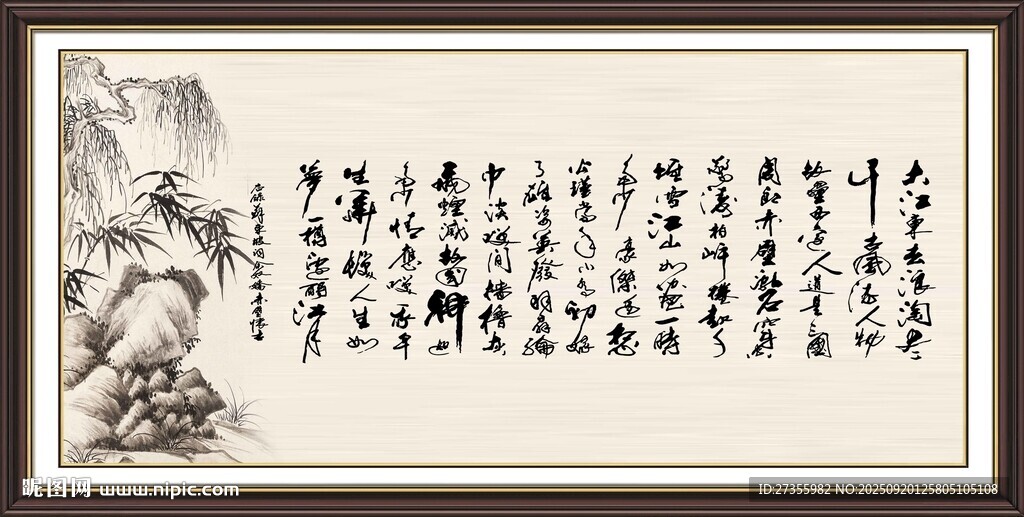 大江東去浪淘尽
千古風流人物
故壘西邊人道是三國
周郎赤壁亂石穿空
驚濤拍岸捲起千
堆雪江山如畫一時
多少豪傑遥想
公瑾當年小喬初嫁
了雄姿英發羽扇綸
巾談笑間檣櫓灰
飛煙滅故國神遊
多情應笑我早
生華髮人生如
夢一樽還酹江月
錄蘇東坡詞念奴嬌赤壁懷古
昵图网 www.nipic.com
ID:27355982 NO:20250920125805105108